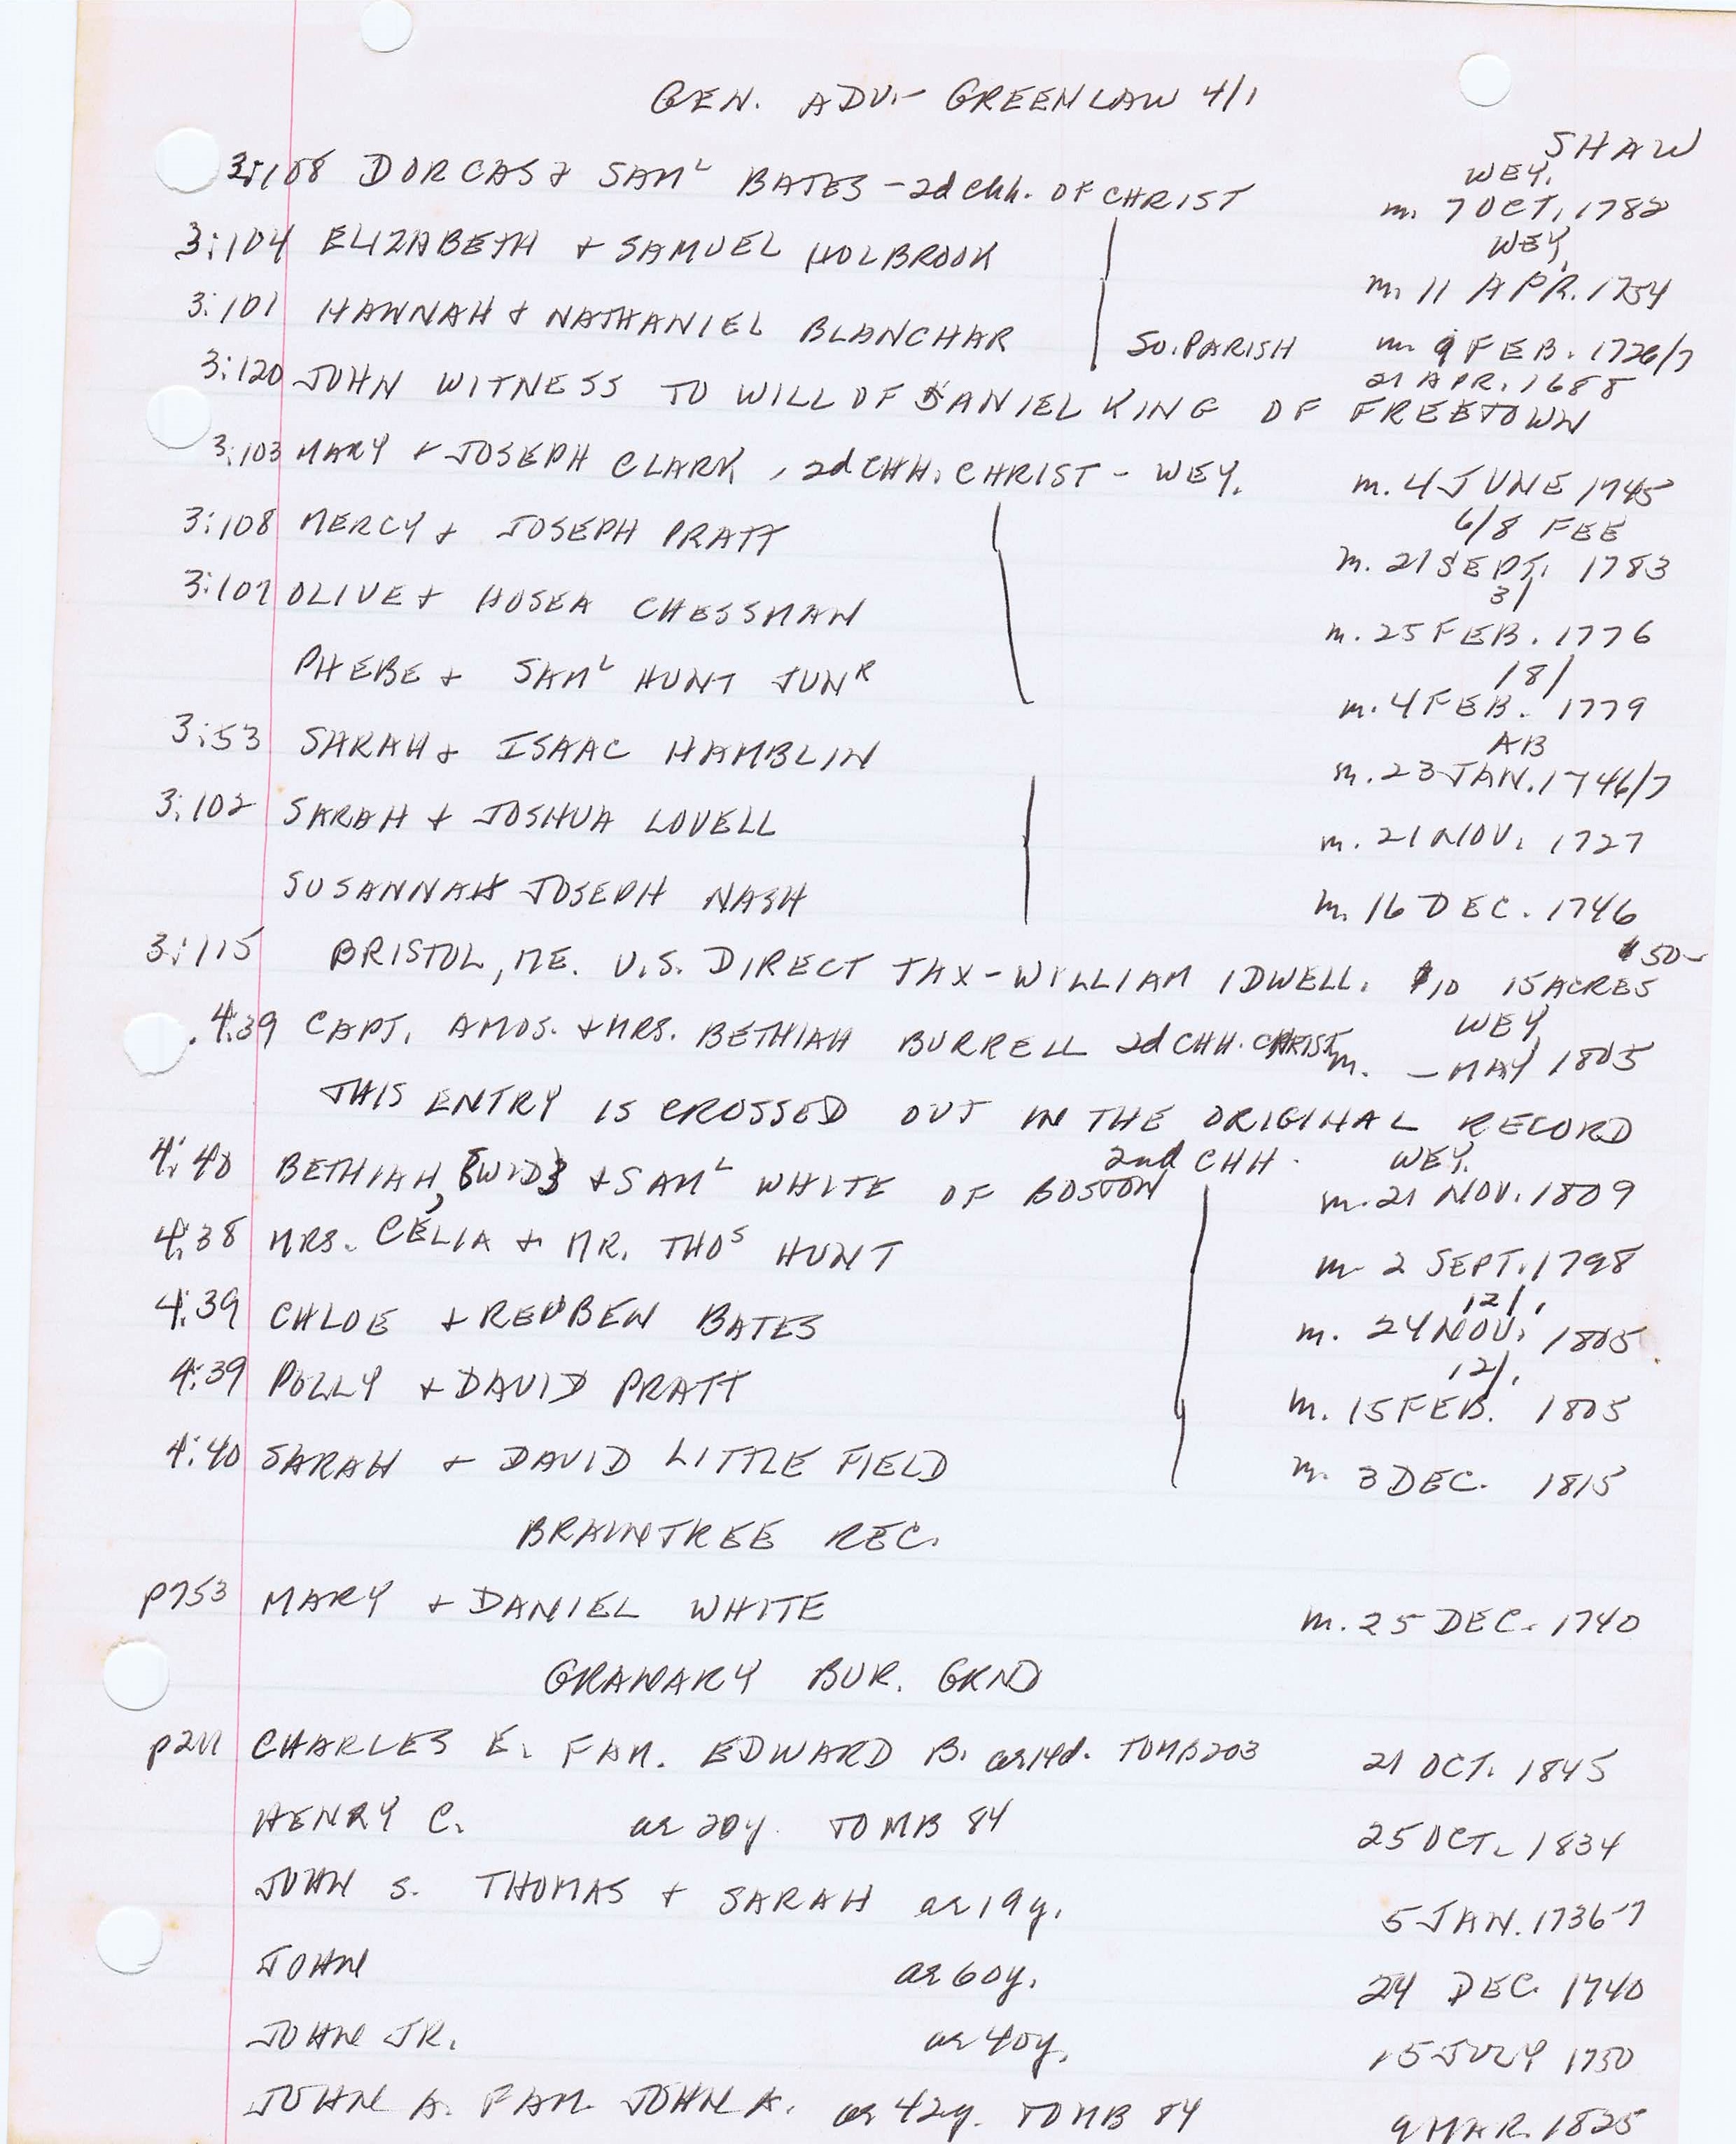 GEN. ADV.- GREENLAW 4/1
SHAW
WEY.
3:108 DORCAS & SAMᴸ BATES - 2d Chh. OF CHRIST m. 7 OCT. 1782
WEY.
3:104 ELIZABETH & SAMUEL HOLBROOK m. 11 APR. 1754
3:101 HANNAH & NATHANIEL BLANCHAR SO. PARISH m. 9 FEB. 1726/7
21 APR. 1688
3:120 JOHN WITNESS TO WILL OF DANIEL KING OF FREETOWN
3:103 MARY & JOSEPH CLARK, 2d CHH. CHRIST - WEY. m. 4 JUNE 1745
6/8 FEE
3:108 MERCY & JOSEPH PRATT m. 21 SEPT. 1783
3/
3:107 OLIVE & HOSEA CHESSMAN m. 25 FEB. 1776
18/
PHEBE & SAMᴸ HUNT JUNᴿ m. 4 FEB. 1779
AB
3:53 SARAH & ISAAC HAMBLIN m. 23 JAN. 1746/7
3:102 SARAH & JOSHUA LOVELL m. 21 NOV. 1727
SUSANNAH & JOSEPH NASH m. 16 DEC. 1746
$50-
3:115 BRISTOL, ME. U.S. DIRECT TAX - WILLIAM 1 DWELL. $10 15 ACRES
WEY.
4:39 CAPT. AMOS. & MRS. BETHIAH BURRELL 2d CHH. CHRIST m. - MAY 1805
THIS ENTRY IS CROSSED OUT IN THE ORIGINAL RECORD
2nd CHH. WEY.
4:40 BETHIAH, {WID} & SAMᴸ WHITE OF BOSTON m. 21 NOV. 1809
4:38 MRS. CELIA & MR. THOˢ HUNT m. 2 SEPT. 1798
12/.
4:39 CHLOE & REUBEN BATES m. 24 NOV. 1805
12/.
4:39 POLLY & DAVID PRATT m. 15 FEB. 1805
4:40 SARAH & DAVID LITTLE FIELD m. 3 DEC. 1815
BRAINTREE REC.
p753 MARY & DANIEL WHITE m. 25 DEC. 1740
GRANARY BUR. GRND
CHARLES E. FAM. EDWARD B. ae 14d. TOMB 203 21 OCT. 1845
HENRY C. ae 20y. TOMB 84 25 OCT. 1834
JOHN S. THOMAS & SARAH ae 19y. 5 JAN. 1736-7
JOHN ae 60y. 24 DEC. 1740
JOHN JR. ae 40y. 15 JULY 1750
JOHN A. FAM. JOHN A. ae 42y. TOMB 84 9 MAR. 1825